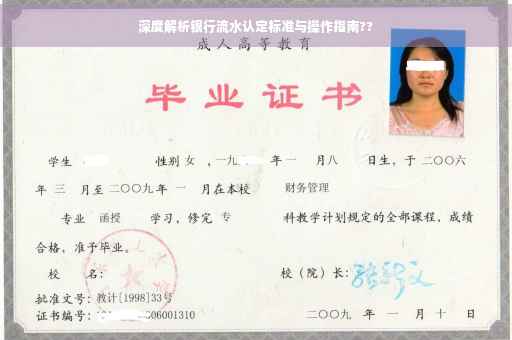 深度解析银行流水认定标准与操作指南??
成人高等教育
毕业证书
学生 性别 女 ,一九 年 一 月八 日生，于 二〇〇六
年 三 月至 二〇〇九 年 一 月在本校 财务管理
专业 函授 学习，修完 专 科教学计划规定的全部课程，成绩
合格，准予毕业。
校 名： 校（院）长：
批准文号：教计[1998]33号
证书编号： 06001310 二〇〇九 年 一 月 十 日